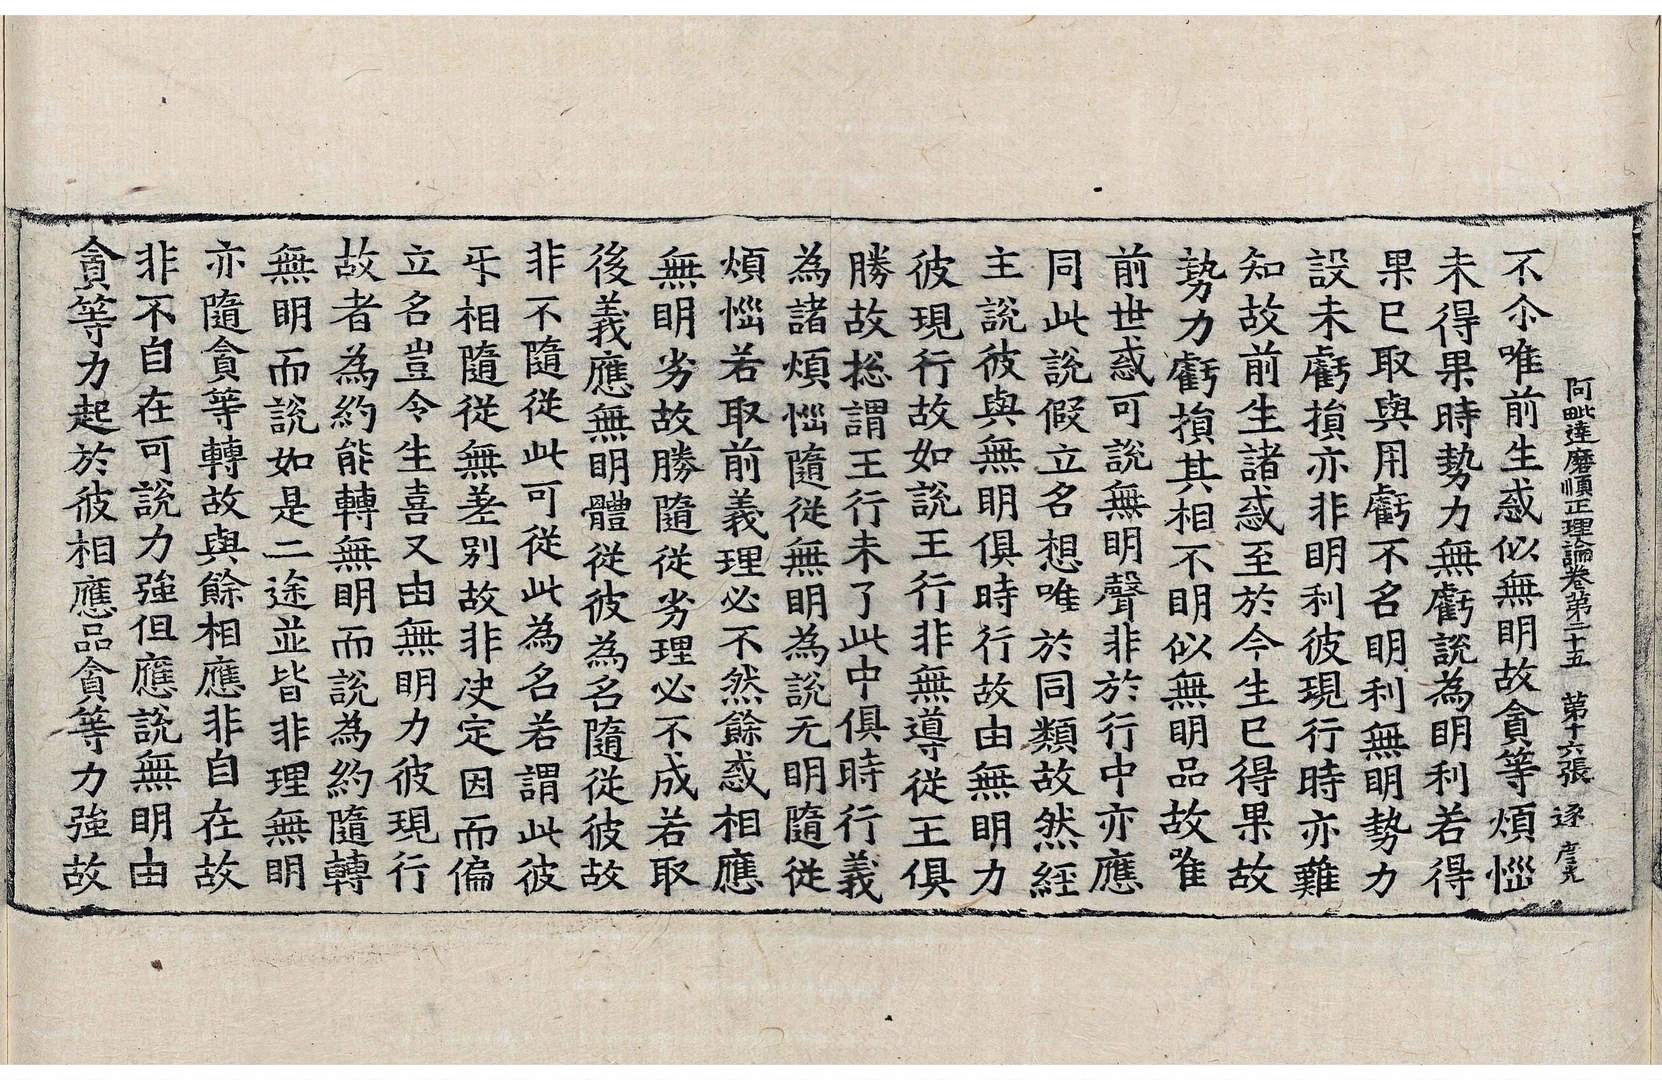 阿毗達磨順正理論卷第二十五 第十六張 逐
不尒唯前生惑似無明故貪等煩惱
未得果時勢力無虧說為明利若得
果已取與用虧不名明利無明勢力
設未虧損亦非明利彼現行時亦難
知故前生諸惑至於今生已得果故
勢力虧損其相不明似無明品故唯
前世惑可說無明聲非於行中亦應
同此說假立名想唯於同類故然經
主說彼與無明俱時行故由無明力
彼現行故如說王行非無導從王俱
勝故惣謂王行未了此中俱時行義
為諸煩惱隨從無明為說无明隨從
煩惱若取前義理必不然餘惑相應
無明劣故勝隨從劣理必不成若取
後義應無明體從彼為名隨從彼故
非不隨從此可從此為名若謂此彼
乎相隨從無差別故非決定因而偏
立名豈令生喜又由無明力彼現行
故者為約能轉無明而說為約隨轉
無明而說如是二途並皆非理無明
亦隨貪等轉故與餘相應非自在故
非不自在可說力強但應說無明由
貪等力起於彼相應品貪等力強故